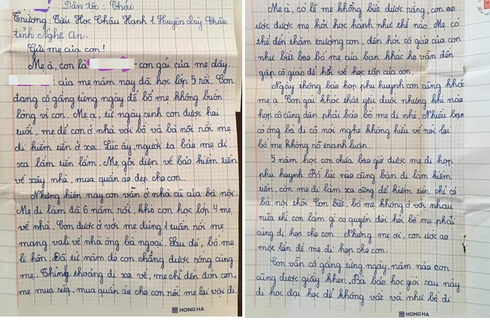 Dân tộc: Thái
Trường: Tiểu Học Châu Hạnh 1, Huyện Quỳ Châu
tỉnh Nghệ An.
Gửi mẹ của con!
Mẹ à, con là con gái của mẹ đây.
của mẹ năm nay đã học lớp 5 rồi. Con
đang cố gắng từng ngày để bố mẹ không buồn
lòng vì con. Mẹ ạ, từ ngày sinh con được hai
tuổi, mẹ để con ở nhà với bố và bà nội rồi mẹ
đi kiếm tiền ở xa. Lúc ấy, người ta bảo mẹ đi
xa lắm tiền lắm. Mẹ gọi điện về bảo kiếm tiền
về xây nhà, mua quần áo đẹp cho con.
Nhưng hiện nay con vẫn ở nhà của bà nội.
Mẹ đi làm đã 6 năm rồi, khi con học lớp 4 mẹ
về nhà. Con được ở với mẹ đúng 1 tuần rồi mẹ
mang vali về nhà ông bà ngoại. Sau đó, bố mẹ
li hôn. Đã từ năm đó con chẳng được sống cùng
mẹ. Thỉnh thoảng đi xa về, mẹ chỉ đến đón con,
mẹ mua sữa, mua quần áo cho con rồi mẹ lại vội đi.
HONG HA
Mẹ à, có lẽ mẹ không biết được rằng, con ao
ước được mẹ hỏi học hành như thế nào. Mẹ có
thể đến thăm trường con, đến hỏi cô giáo của con
như biết bao bố mẹ của bạn khác họ vẫn đến
gặp cô giáo để hỏi về học tập của con.
Ngày thông báo họp phụ huynh con cũng khóc
mẹ ạ. Con gái khóc thật yếu đuối nhưng khi nào
họp cô cũng dặn phải bảo bố mẹ đi nhé. Nhiều bạn
có ông bà đi cô nói nghe không hiểu về nói lại
bố mẹ không rõ tranh luận.
5 năm học con chưa bao giờ được mẹ đi họp
phụ huynh. Bố lúc nào cũng bận đi làm kiếm
tiền, còn mẹ đi làm xa cũng để kiếm tiền, chỉ có
bà nội thôi. Con biết, bố mẹ không ở với nhau
nữa thì con làm gì có quyền đòi hỏi bố mẹ phải
cùng đi họp cho con. Nhưng mẹ ơi, con ước ao
một lần để mẹ đi họp cho con.
Con vẫn cố gắng từng ngày, năm nào con
cũng được giấy khen. Bà bảo học giỏi sau này
đi học đại học để không vất vả như bố đi
HONG HA